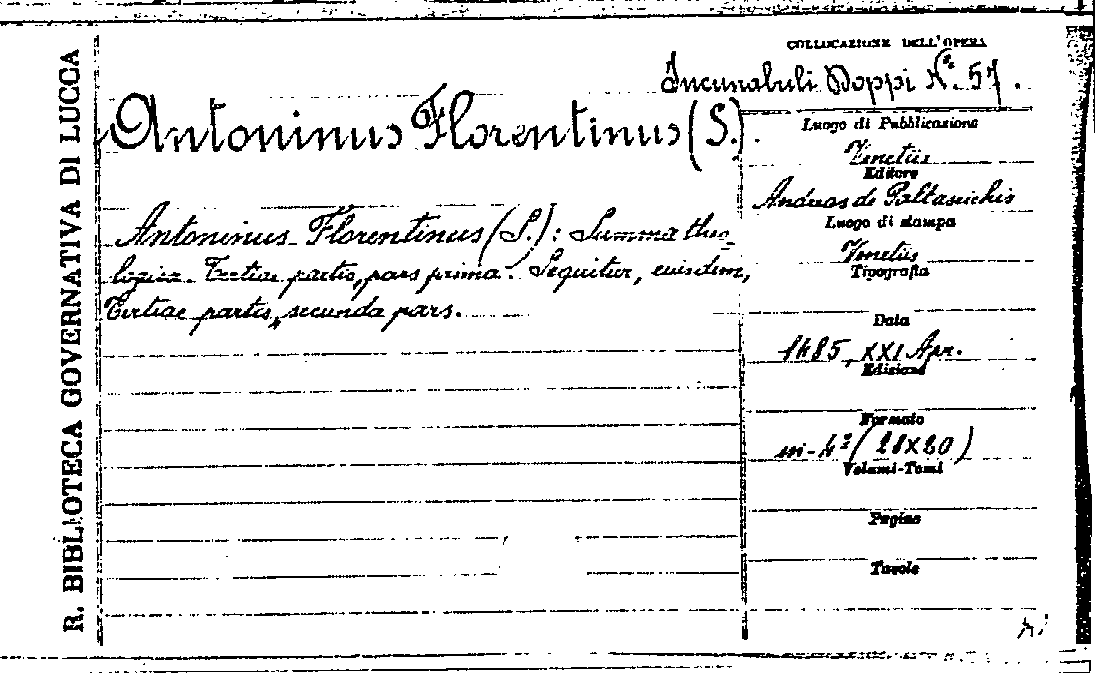 R. BIBLIOTECA GOVERNATIVA DI LUCCA
COLLOCAZIONE DELL'OPERA
Incunabuli Doppi No. 57.
Antoninus Florentinus (S.).
Antoninus Florentinus (S.): Summa theo-
logica. Tertiae partis, pars prima. Sequitur, eiusdem,
Tertiae partis, secunda pars.
Luogo di Pubblicazione
Venetiis
Editore
Andreas de Paltasichis
Luogo di stampa
Venetiis
Tipografia
Data
1485, XXI Apr.
Edizione
Formato
in-4º (28X20)
Volumi-Tomi
Pagine
Tavole